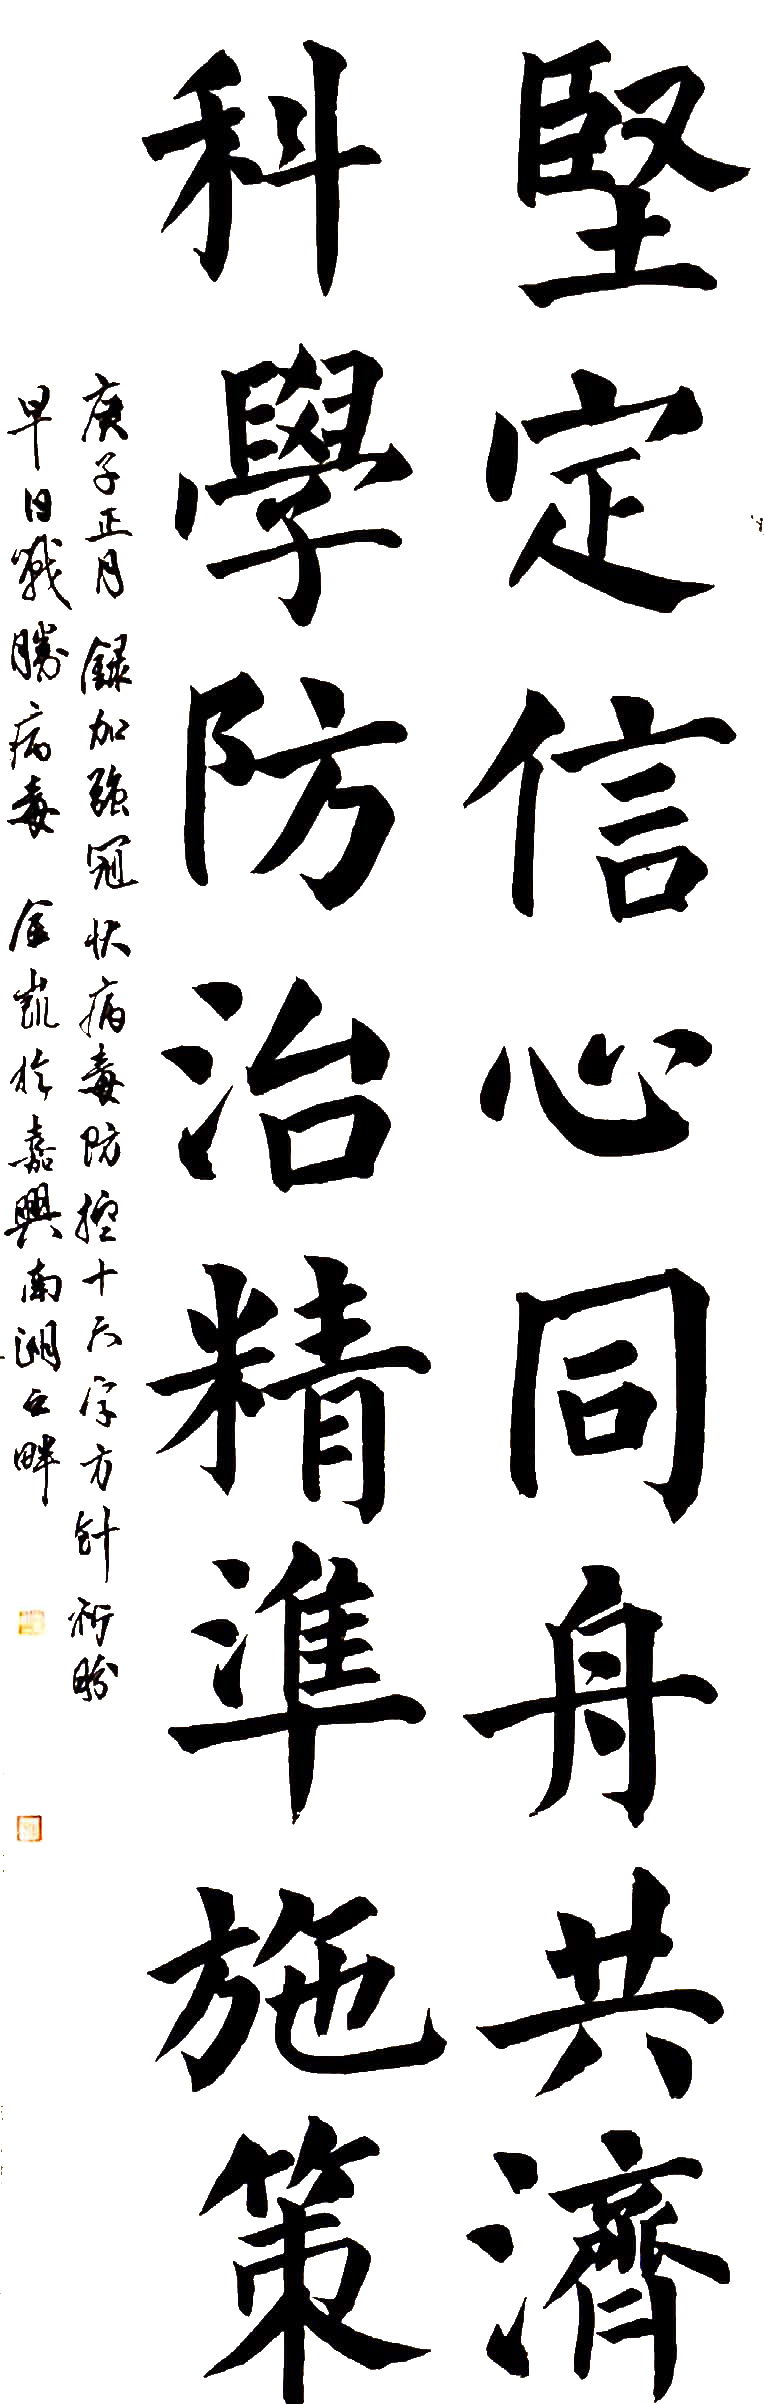 堅定信心同舟共濟
科學防治精準施策
庚子正月錄加強冠狀病毒防控十六字方針祈盼
早日戰勝病毒 金凱於嘉興南湖之畔